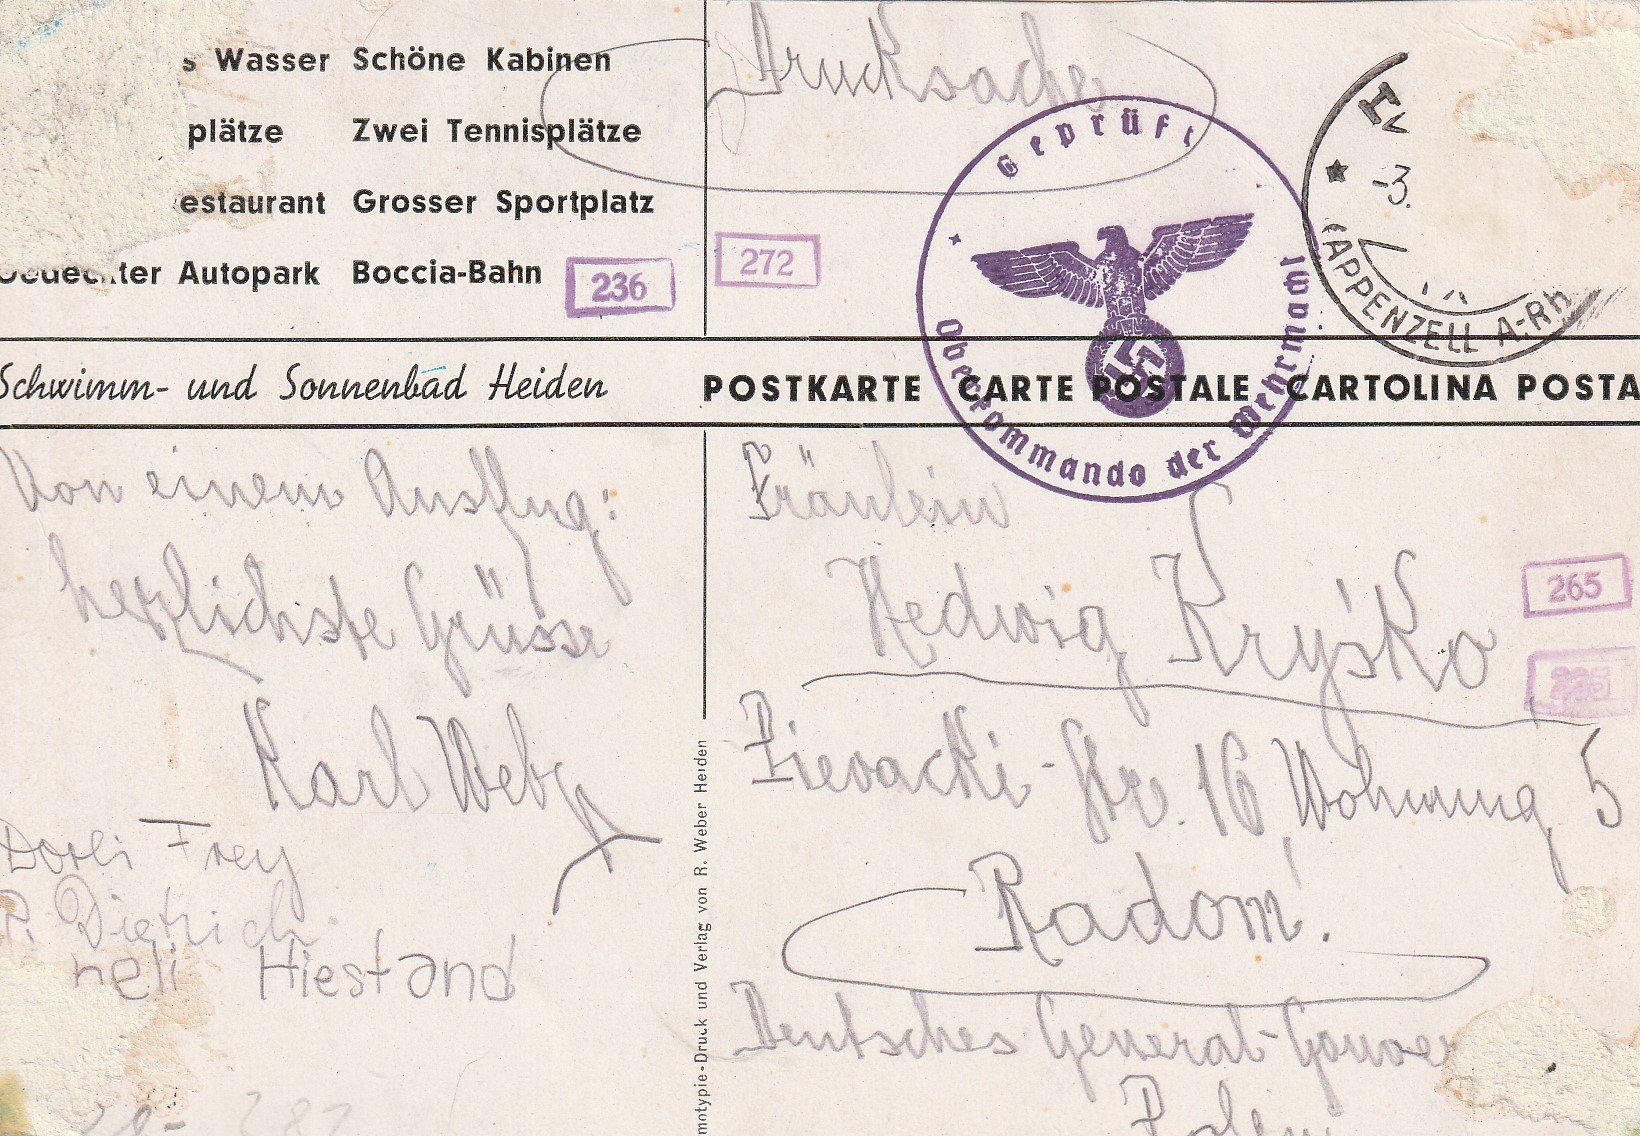 s Wasser Schöne Kabinen
plätze Zwei Tennisplätze
estaurant Grosser Sportplatz
Autopark Boccia-Bahn
236
272
Drucksache
Geprüft
Oberkommando der Wehrmacht
-3.
APPENZELL A-Rh
Schwimm- und Sonnenbad Heiden
POSTKARTE CARTE POSTALE CARTOLINA POSTA
Von einem Ausflug:
herzlichste Grüsse
Karl Weber
Dorli Frey
P. Dietrich
neli Hiestand
motypie-Druck und Verlag von R. Weber Heiden
Fräulein
Hedwig Kryśko
265
Pieracki-Str. 16, Wohnung 5
Radom!
Deutsches General-Gouver
Polen